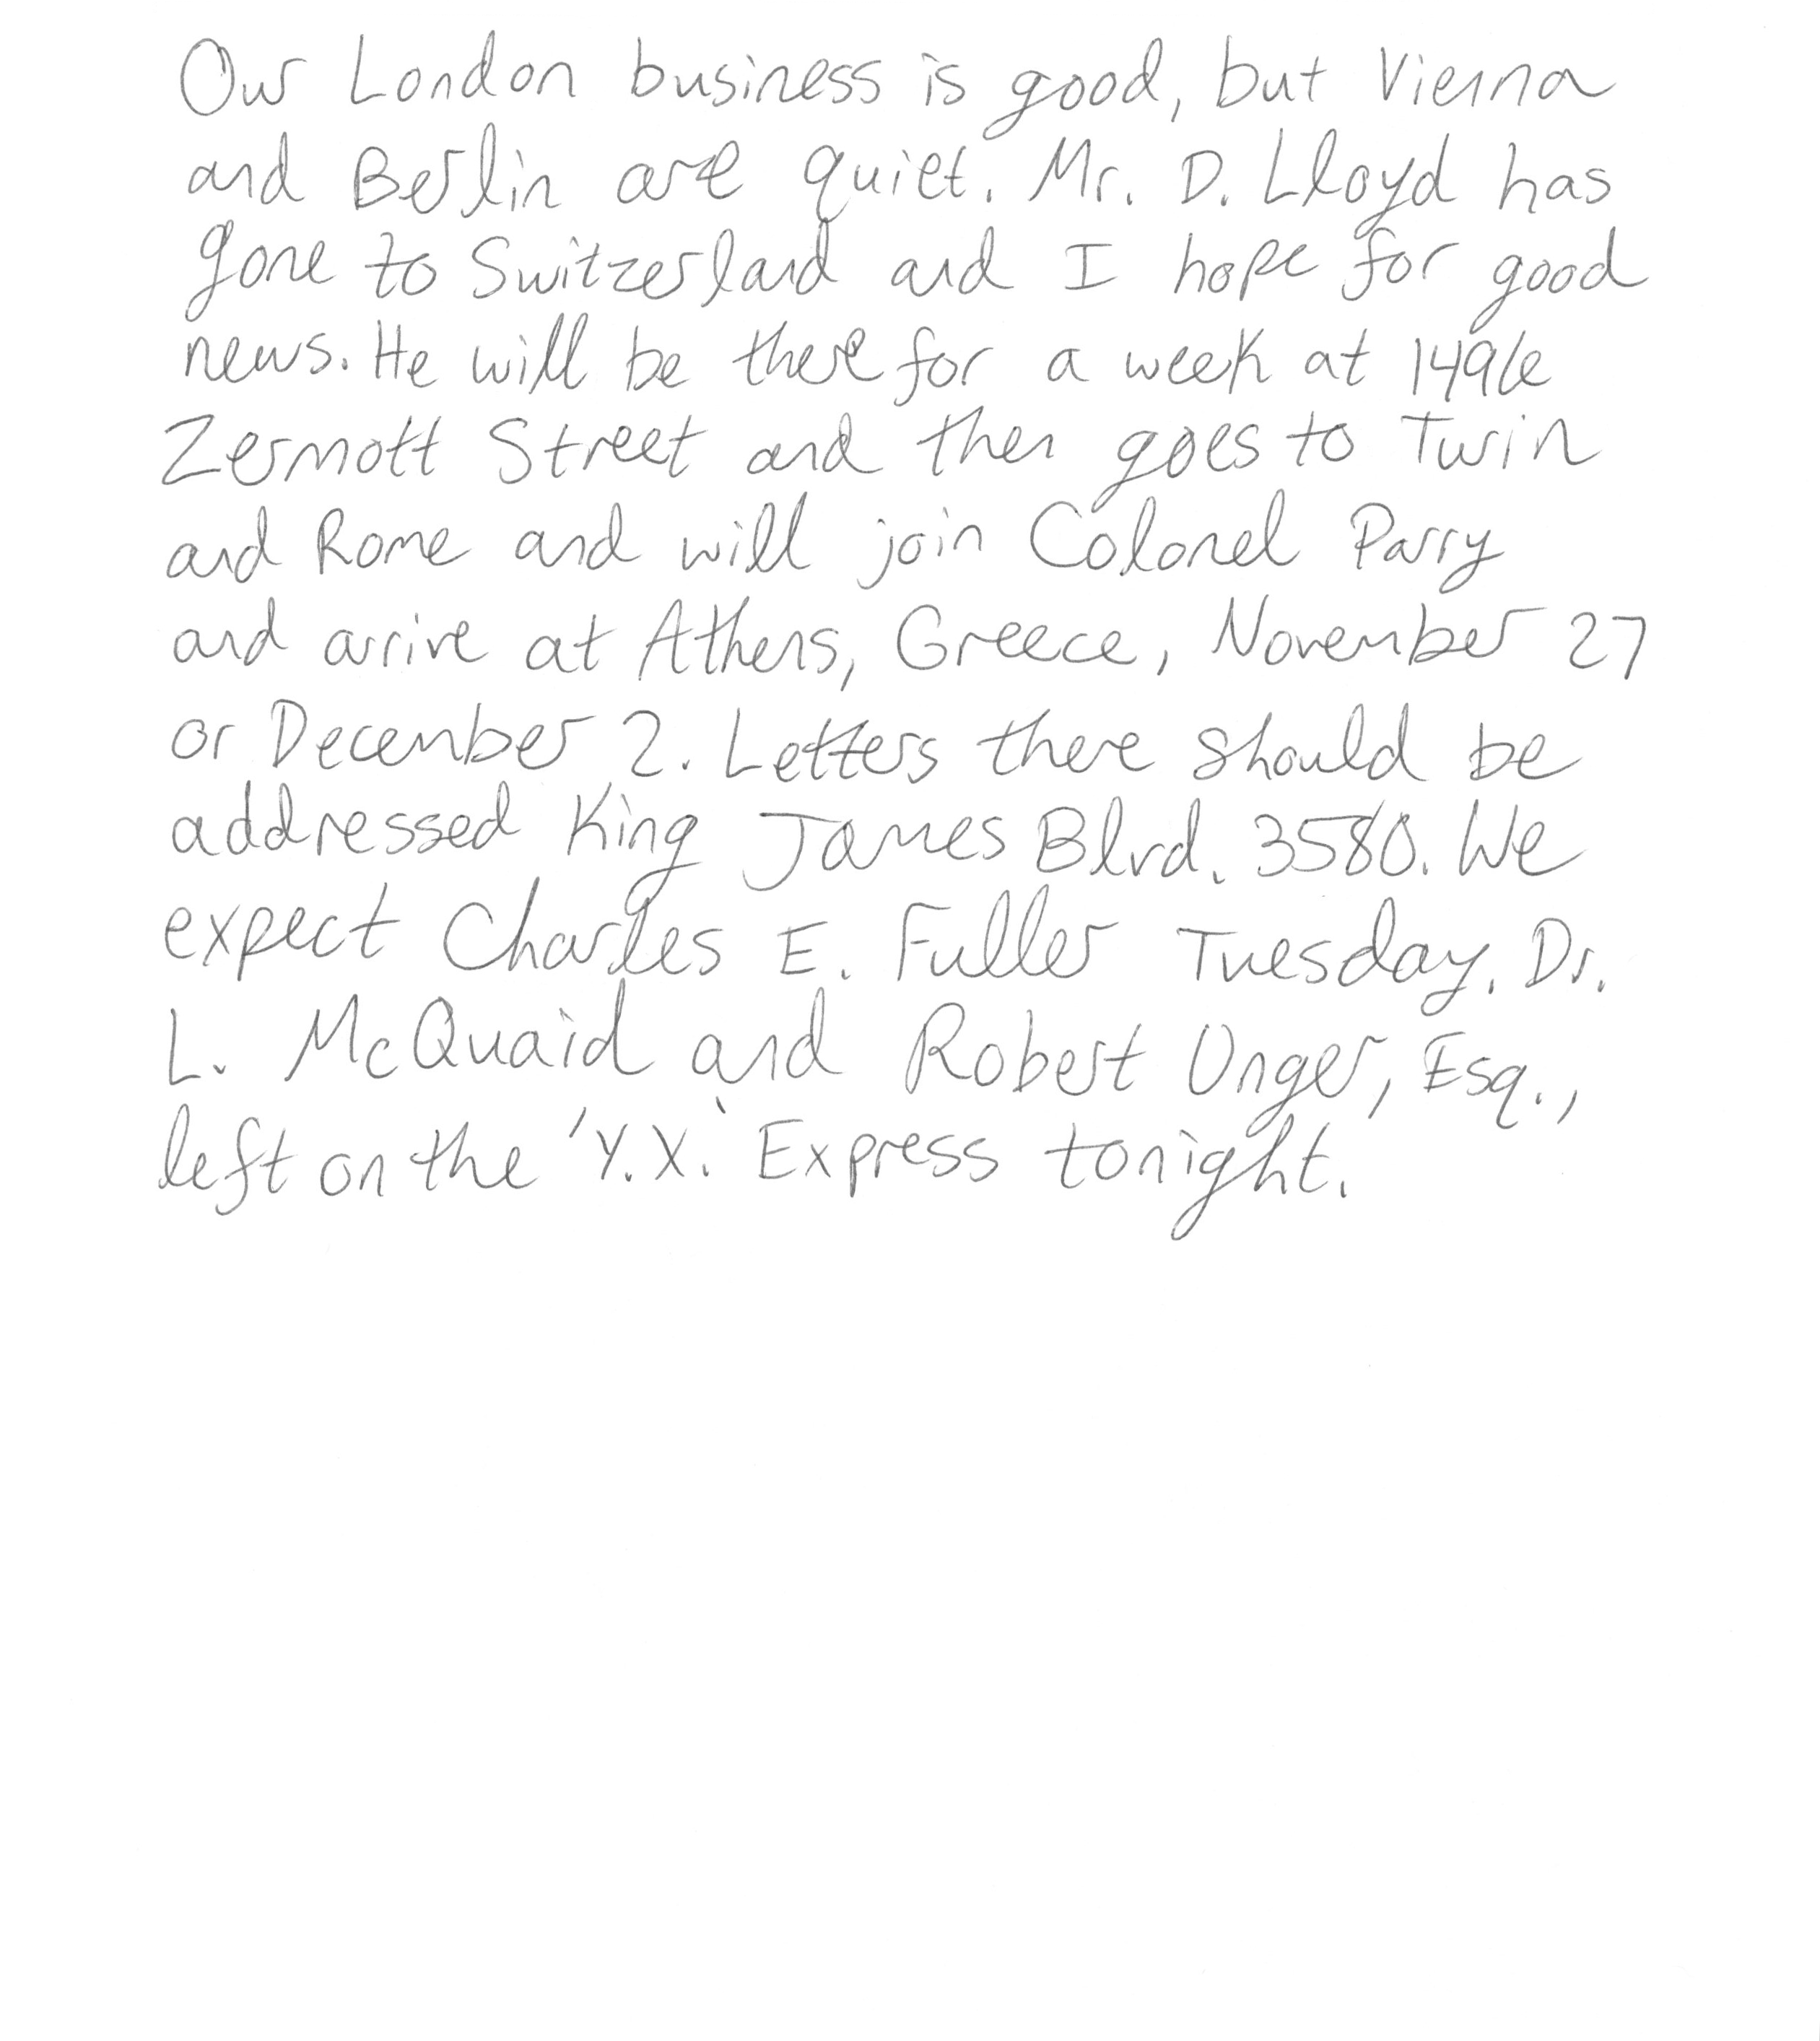 Our London business is good, but Vienna
and Berlin are quiet. Mr. D. Lloyd has
gone to Switzerland and I hope for good
news. He will be there for a week at 1496
Zermott Street and then goes to Turin
and Rome and will join Colonel Parry
and arrive at Athens, Greece, November 27
or December 2. Letters there should be
addressed King James Blvd. 3580. We
expect Charles E. Fuller Tuesday. Dr.
L. McQuaid and Robert Unger, Esq.,
left on the 'Y.X.' Express tonight.